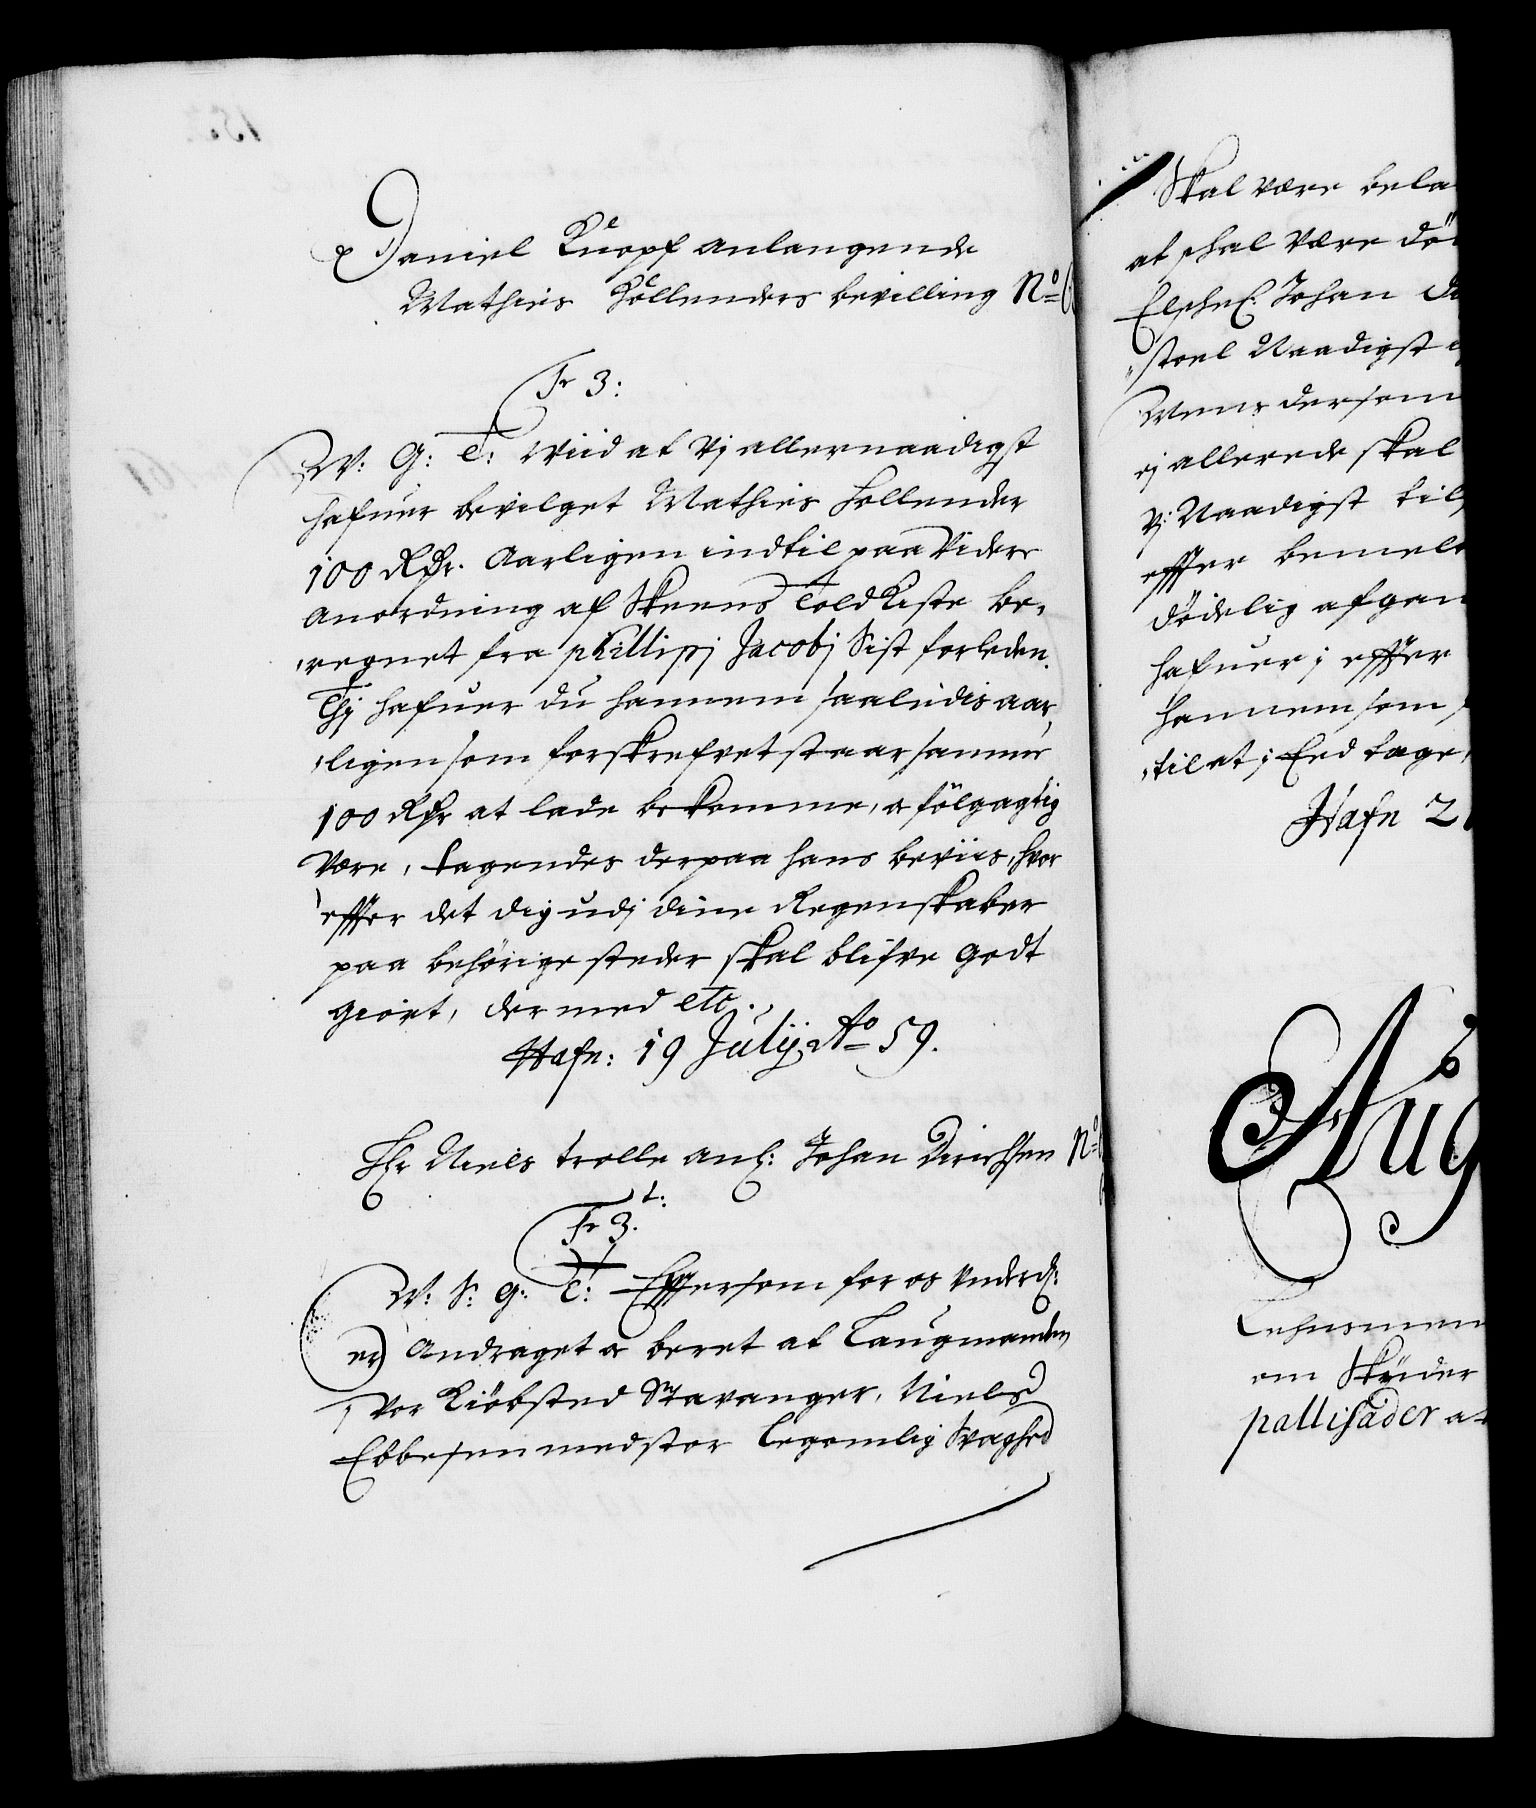 Daniel Knopf anlangende
Mathies Hollenders bevilling No
Fr 3:
W: G: T: Wiid at Vj allernaadigst
hafuer bevilget Mathies Hollender
100 Rdr. Aarligen indtil paa Videre
anordning af Skeens Told Kiste be,
,regnet fra phillipj Jacobj Sist forleden.
Thj hafuer du hannem saaledis aar,
,ligen som forskrefvet staar samme
100 Rdr at lade bekomme, oc fölgagtig
Være, tagendes derpaa hans beviis, hvor
effter det dig udj dine Regenskaber
paa behörige steder skal blifve godt
giort, der med etc.
Hafn: 19 Julij Ao 59.
Hr Niels Trolle anl: Johan Dirichsen No
Fr 3. t:
W: S: G: T: Effersom for os Underd:
er Andraget oc beret at Laugmanden
j Vor Kiöbsted Stavanger, Niels
Ebbesen med stor Legemlig Svaghed
Skal være bela
at schal Være dö
Elschel: Johan Di
stoel Naadigst
Mens dersom
ej allerede skal
Vj Naadigst til
effter bemelt
dödelig afgan
hafuer j effter
hannem som
,til at j Eed tage,
Hafn 2
Aug
Lehnsmen
om Skuder
pallisader a